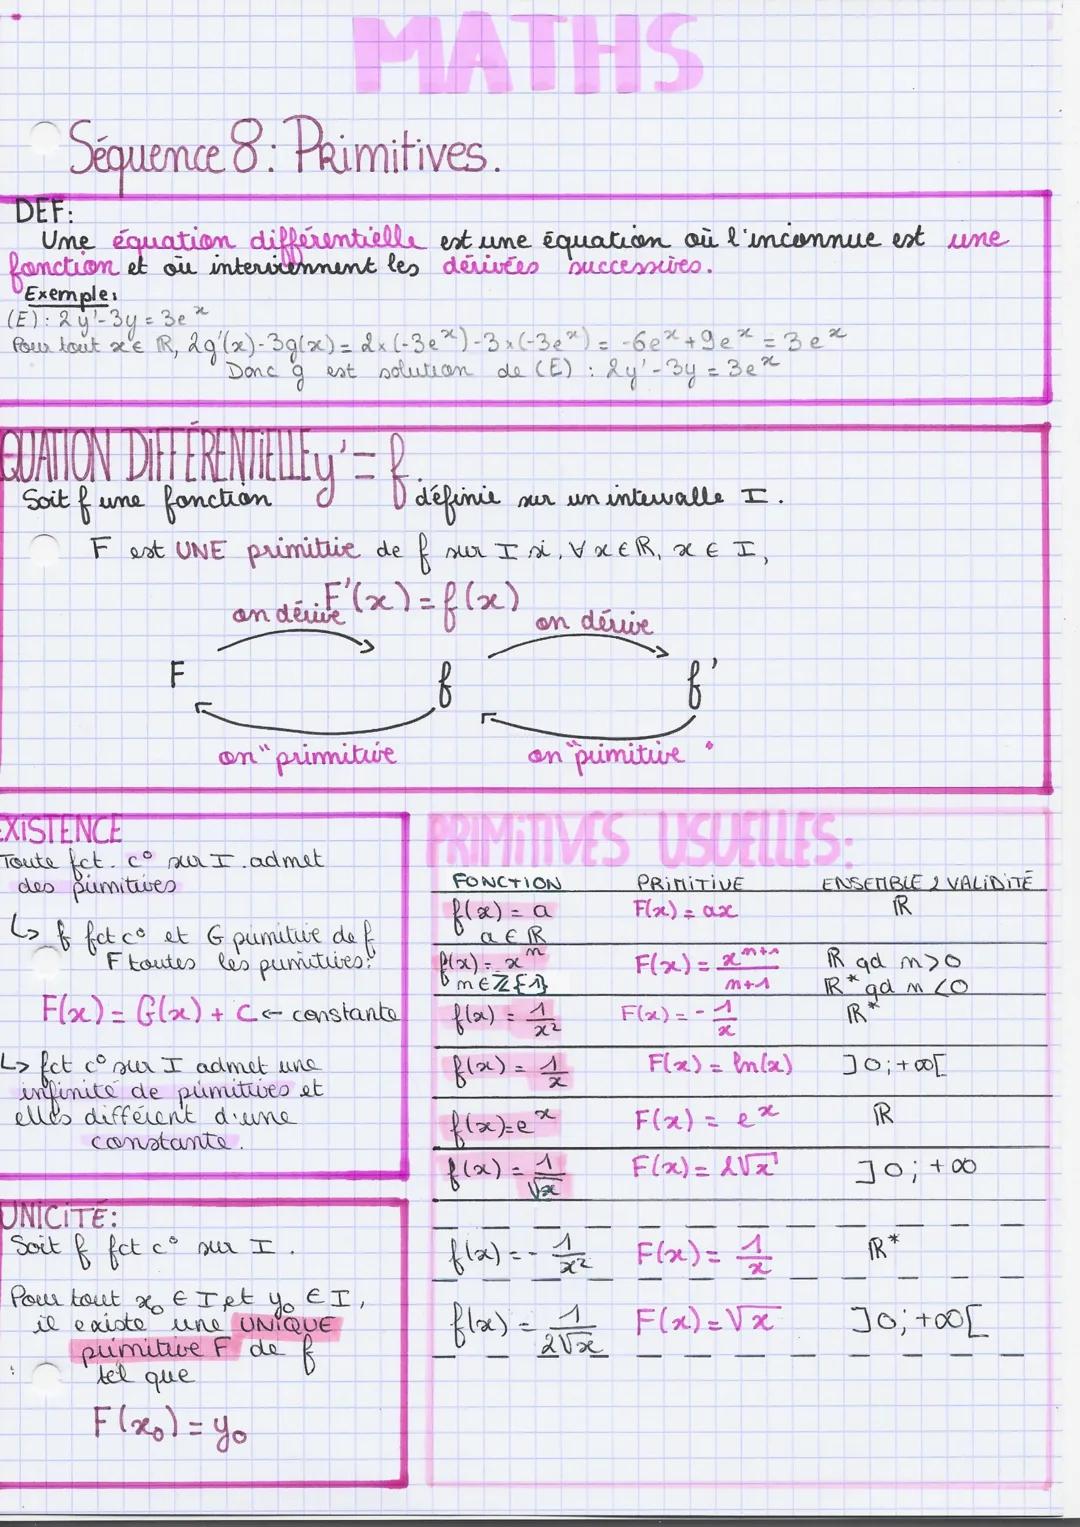 MATHS
Séquence 8 : Primitives.
DEF:
Une équation différentielle est une équation où l'inconnue est une
fonction et où interviennent les dérivées successives.
Exemple:
(E) : 2y'-3y = 3e^x
Pour tout x ∈ ℝ, 2g'(x)-3g(x) = 2×(-3e^x)-3×(-3e^x) = -6e^x+9e^x = 3e^x
Donc g est solution de (E) : 2y'-3y = 3e^x
QUATION DIFFÉRENTIELLE y' = f
Soit f une fonction définie sur un intervalle I.
F est UNE primitive de f sur I si, ∀x∈ℝ, x ∈ I,
F'(x) = f(x)
on dérive on dérive
F f f'
on "primitive on "primitive "
EXISTENCE
Toute fct. c° sur I. admet
des primitives
↳ f fct c° et G primitive de f
F toutes les primitives:
F(x) = G(x) + C ← constante
↳ fct c° sur I admet une
infinité de primitives et
elles différent d'une
constante.
UNICITÉ:
Soit f fct c° sur I.
Pour tout x₀ ∈ I, et y₀ ∈ I,
il existe une UNIQUE
primitive F de f
tel que
F(x₀) = y₀
PRIMITIVES USUELLES:
FONCTION PRIMITIVE ENSEMBLE 2 VALIDITÉ
f(x) = a F(x) = ax ℝ
a ∈ ℝ
f(x) = x^n F(x) = x^(n+1)/(n+1) ℝ qd n>0
n∈ℤ{1} ℝ* qd n<0
f(x) = 1/x² F(x) = -1/x ℝ*
f(x) = 1/x F(x) = ln(x) ]0;+∞[
f(x)=e^x F(x) = e^x ℝ
f(x) = 1/√x F(x) = 2√x ]0;+∞
f(x) = -1/x² F(x) = 1/x ℝ*
f(x) = 1/(2√x) F(x) = √x ]0;+∞[